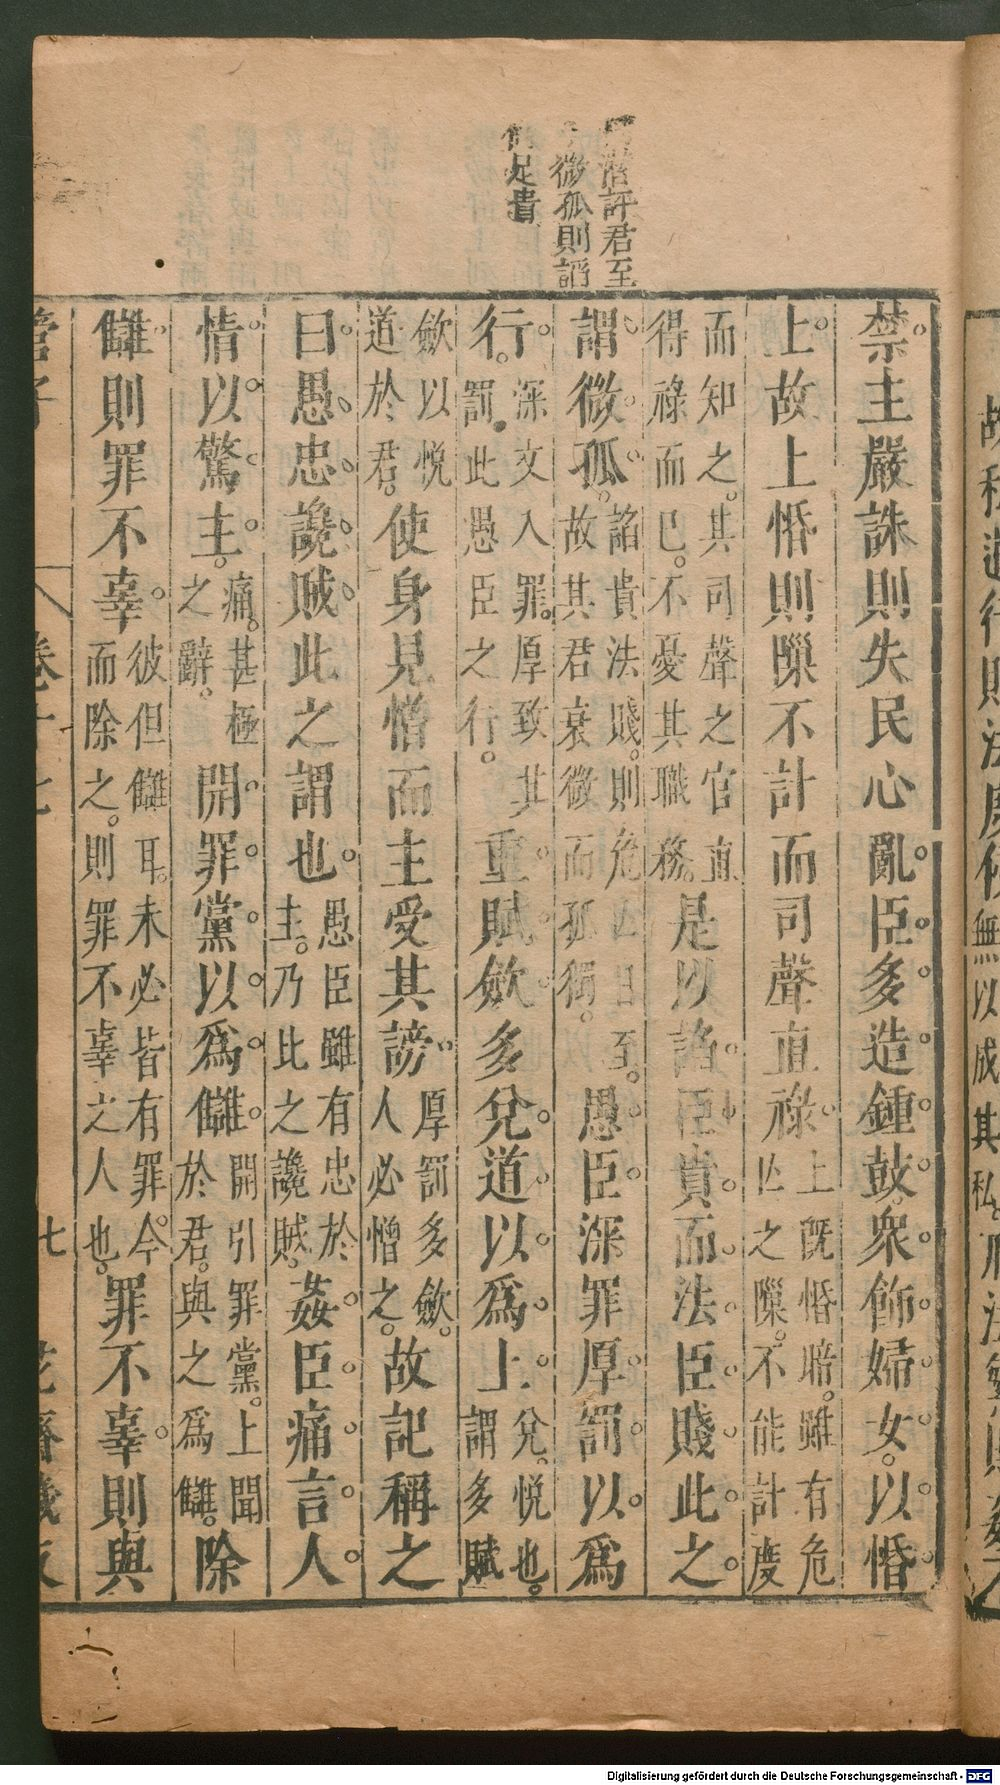 評君至
微孤則謟
足貴
禁主嚴誅則失民心亂臣多造鍾鼓衆飾婦女以惛
上故上惛則隟不計而司聲直祿上既惛暗雖有危亾之隟不能計度
而知之其司聲之官直得祿而已不憂其職務是以謟臣貴而法臣賤此之
謂微孤謟貴法賤則危亾日至故其君衰微而孤獨愚臣深罪厚罰以爲
行深文入罪厚致其罰此愚臣之行重賦斂多兌道以爲上兌悅也謂多賦
斂以悅道於君使身見憎而主受其謗厚罰多斂人必憎之故記稱之
曰愚忠讒賊此之謂也愚臣雖有忠於主乃比之讒賊姦臣痛言人
情以驚主痛甚極之辭開罪黨以爲讎開引罪黨上聞於君與之爲讎除
讎則罪不辜彼但讎耳未必皆有罪今而除之則罪不辜之人也罪不辜則與
管子
卷十七
七
花齋藏板
無以成其私
Digitalisierung gefördert durch die Deutsche Forschungsgemeinschaft - DFG